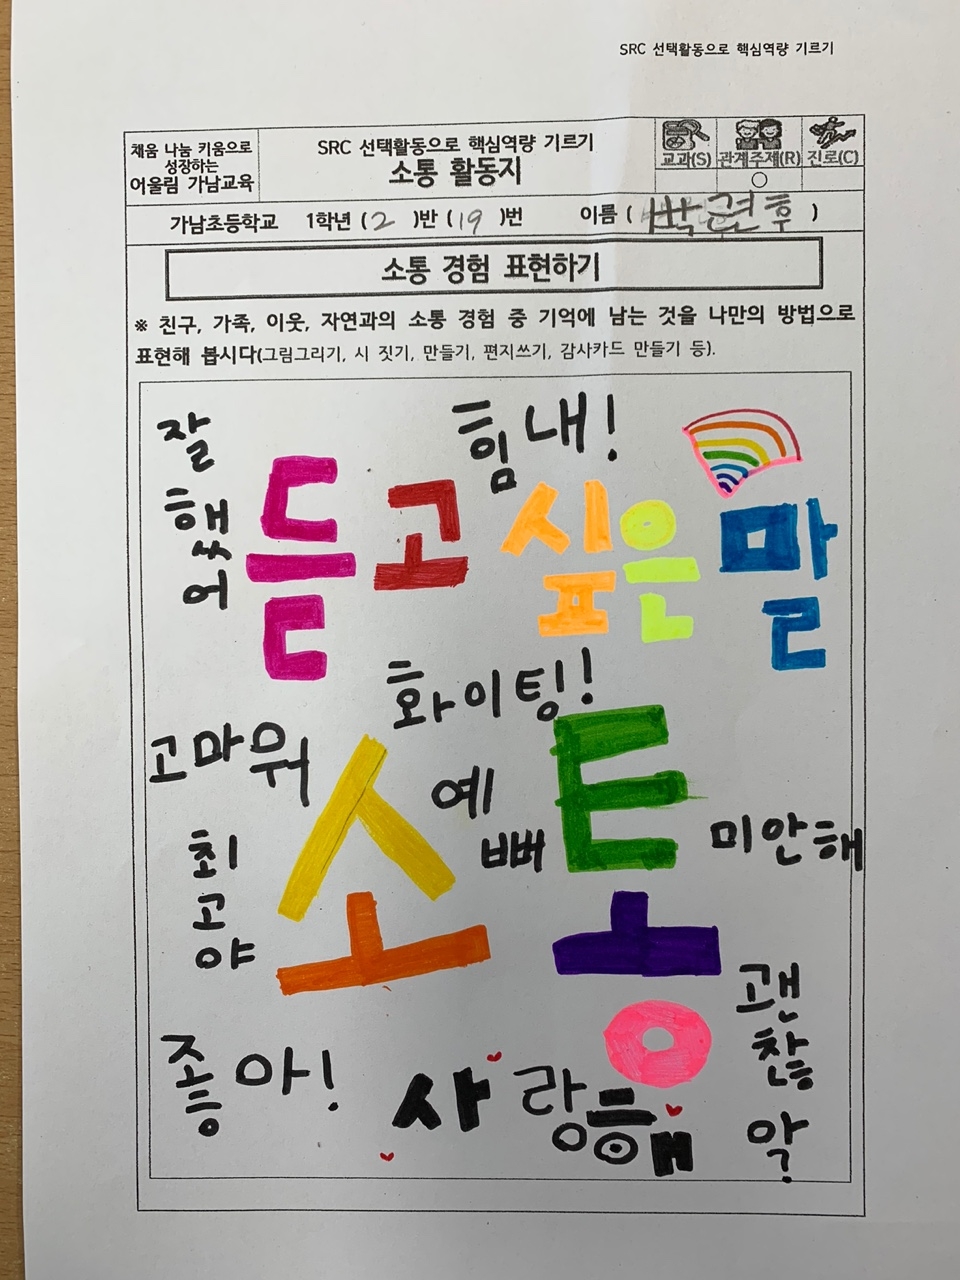 SRC 선택활동으로 핵심역량 기르기
채움 나눔 키움으로
성장하는
어울림 가남교육
SRC 선택활동으로 핵심역량 기르기
소통 활동지
교과(S) 관계주제(R) 진로(C)
○
가남초등학교 1학년 ( 2 )반 ( 19 )번 이름 ( 박권후 )
소통 경험 표현하기
※ 친구, 가족, 이웃, 자연과의 소통 경험 중 기억에 남는 것을 나만의 방법으로
표현해 봅시다(그림그리기, 시 짓기, 만들기, 편지쓰기, 감사카드 만들기 등).
잘
했
어
힘내!
듣고 싶은 말
화이팅!
고마워
소통
예
뻐
미안해
최
고
야
괜
찮
아?
좋아!
사랑해